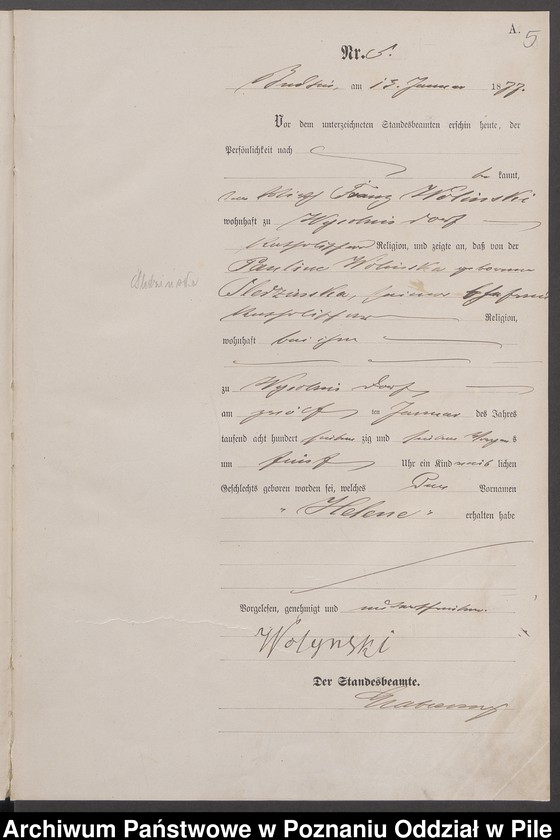 A.
5
Nr. 5.
Budsin, am 13. Januar 1877.
Vor dem unterzeichneten Standesbeamten erschien heute, der
Persönlichkeit nach
be kannt,
Franz Wolinski
wohnhaft zu Wysokie Dorf
katholischer Religion, und zeigte an, daß von der
Pauline Wolinska geborene
Sledzinska, seiner Ehefrau
katholischer Religion,
wohnhaft bei ihm
zu Wysokie Dorf
am zwölf ten Januar des Jahres
tausend acht hundert sieben zig und sieben Morgens
um fünf Uhr ein Kind weib lichen
Geschlechts geboren worden sei, welches den Vornamen
"Helene" erhalten habe
Vorgelesen, genehmigt und unterschrieben.
Wołynski
Der Standesbeamte.
Archiwum Państwowe w Poznaniu Oddział w Pile